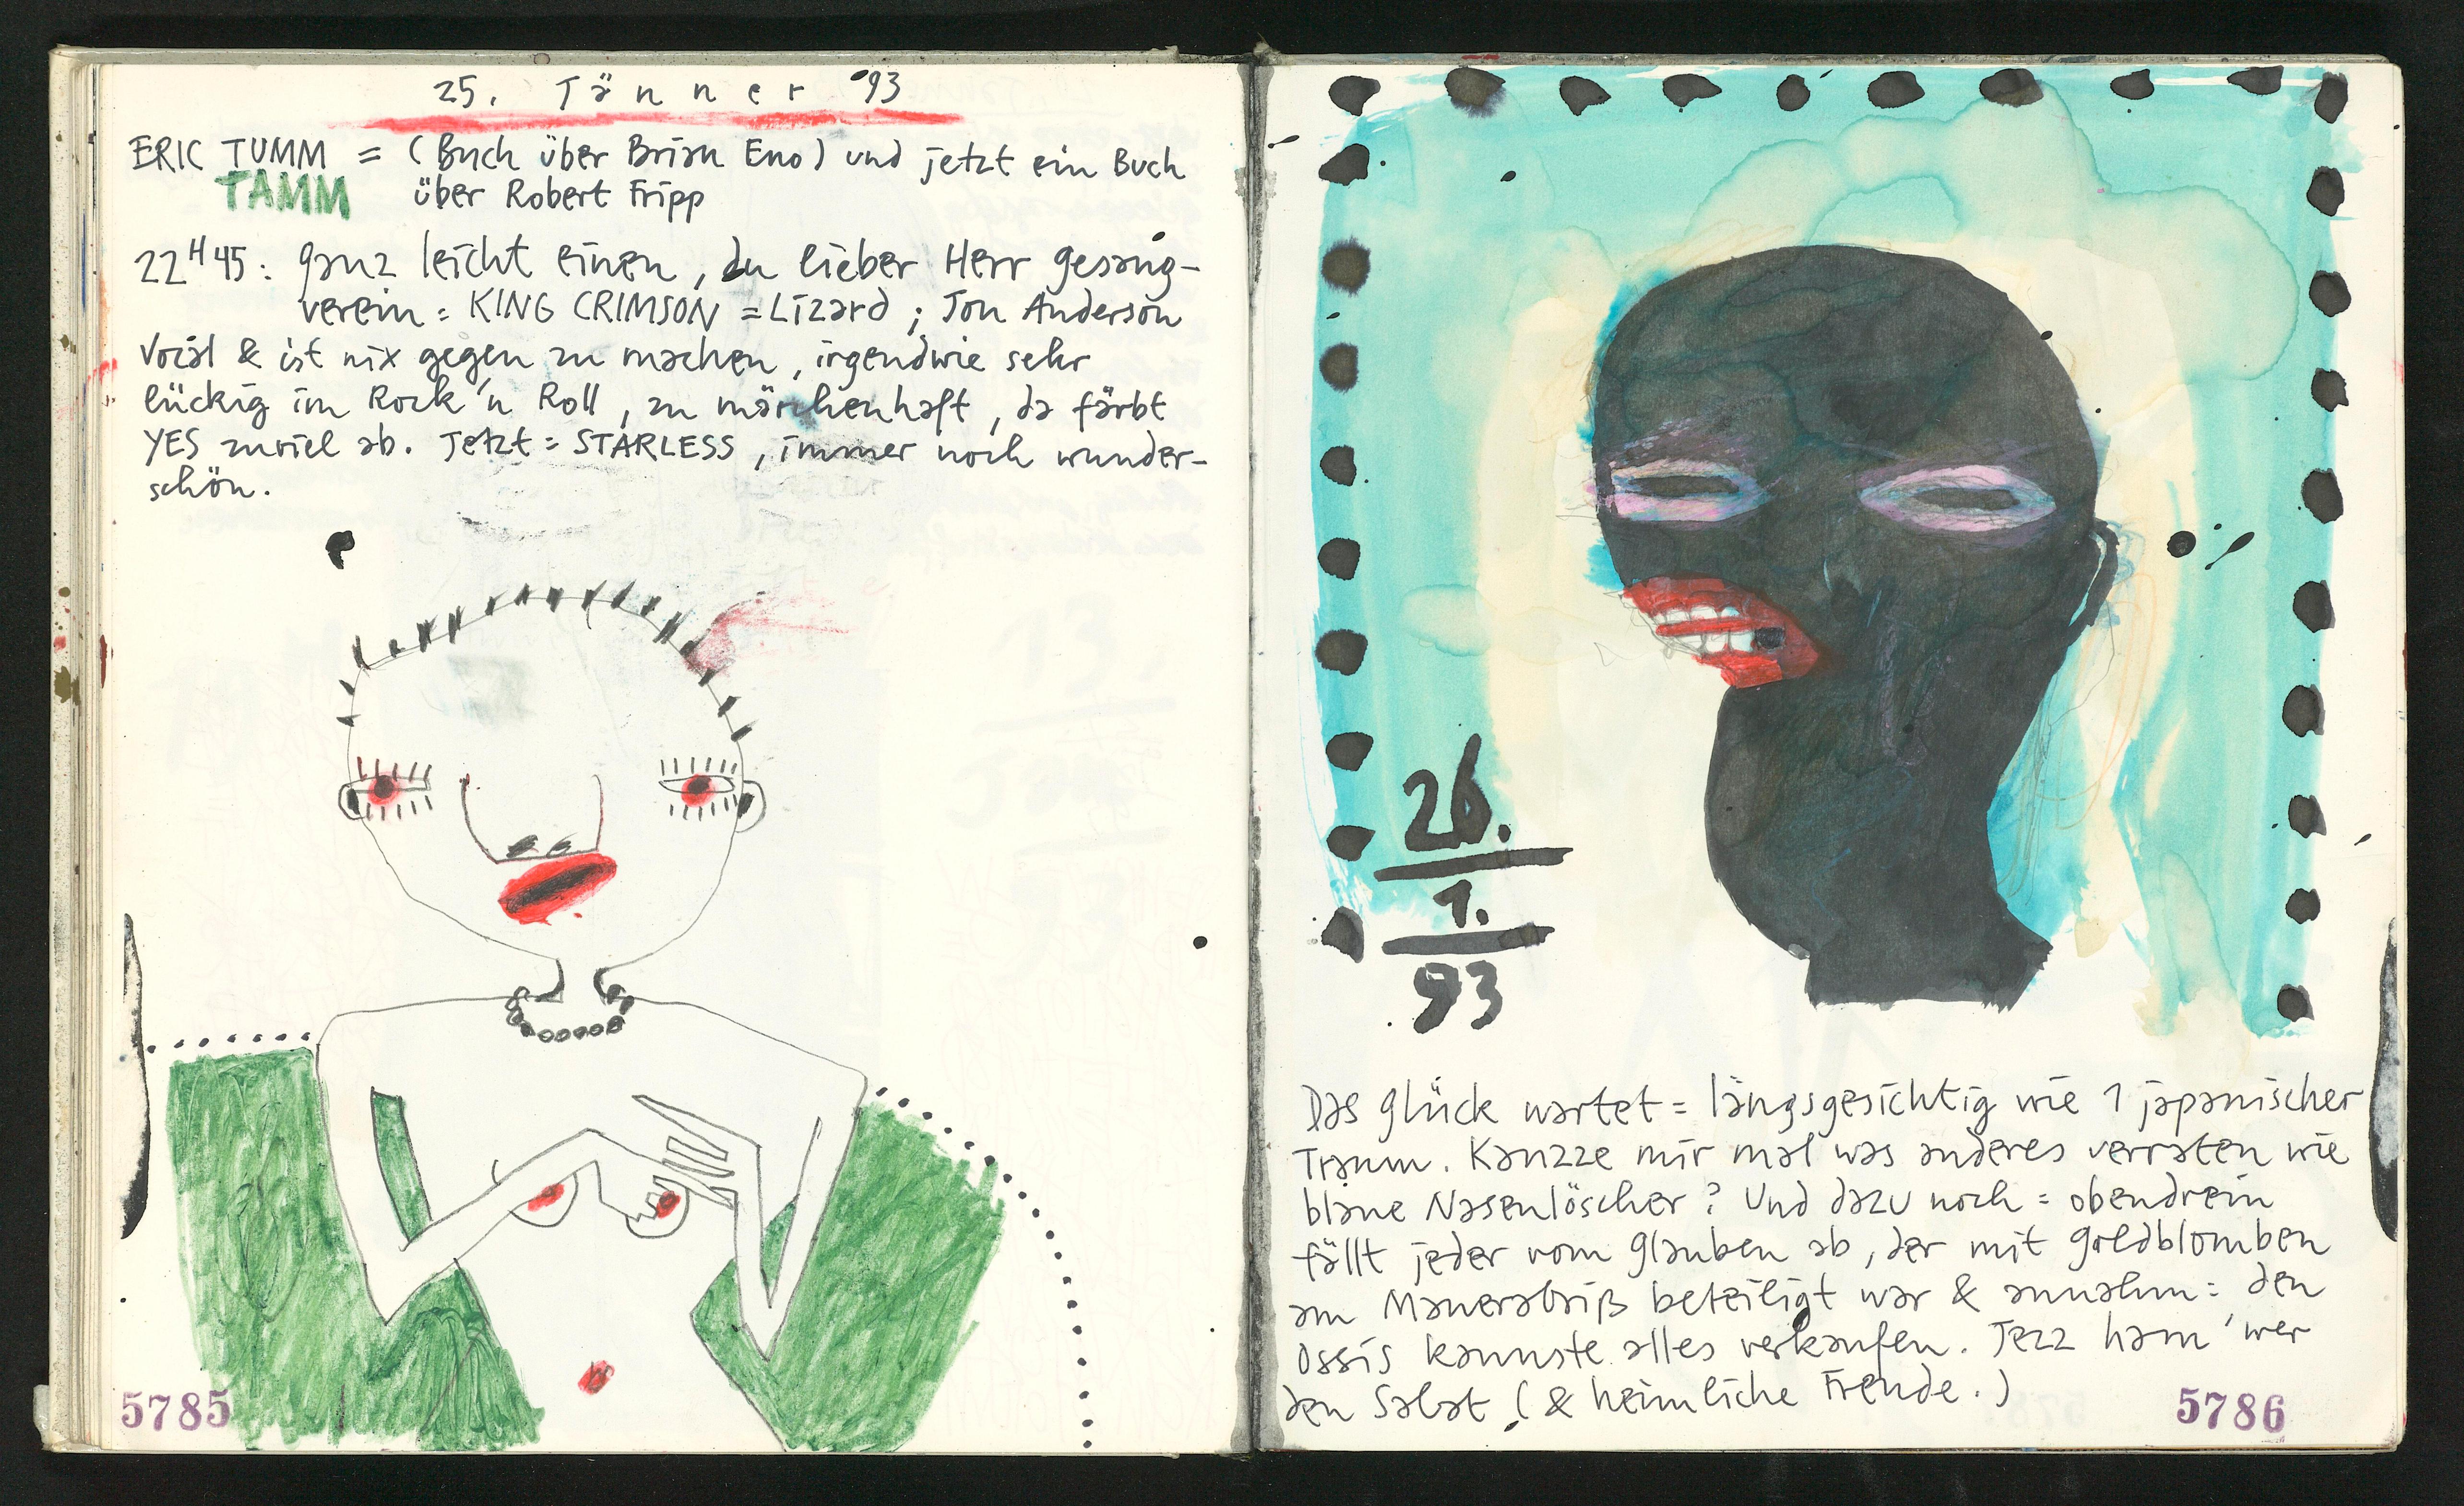 25. Jänner '93
ERIC TUMM = (Buch über Brian Eno) und jetzt ein Buch
TAMM über Robert Fripp
22H45: ganz leicht einen, du lieber Herr gesang-
verein = KING CRIMSON = Lizard ; Jon Anderson
Vocal & ist nix gegen zu machen, irgendwie sehr
lückig im Rock'n Roll, zu märchenhaft, da färbt
YES zuviel ab. Jetzt = STARLESS, immer noch wunder-
schön.
5785
26.
1.
93
Das Glück wartet = längsgesichtig wie 1 japanischer
Traum. Kanzze mir mal was anderes verraten wie
blaue Nasenlöscher? Und dazu noch = obendrein
fällt jeder vom Glauben ab, der mit Goldblomben
am Mauerabriß beteiligt war & annahm = den
Ossis kannste alles verkaufen. Jezz ham'wer
den Salat (& heimliche Freude.)
5786